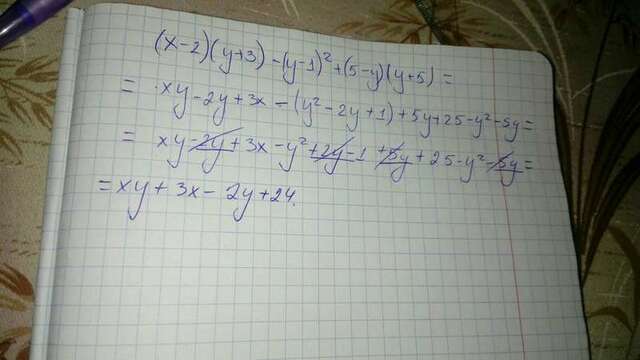 (x-2)(y+3)-(y-1)²+(5-y)(y+5)=
= xy-2y+3x-(y²-2y+1)+5y+25-y²-5y=
= xy-2y+3x-y²+2y-1+5y+25-y²-5y=
=xy+3x-2y+24.